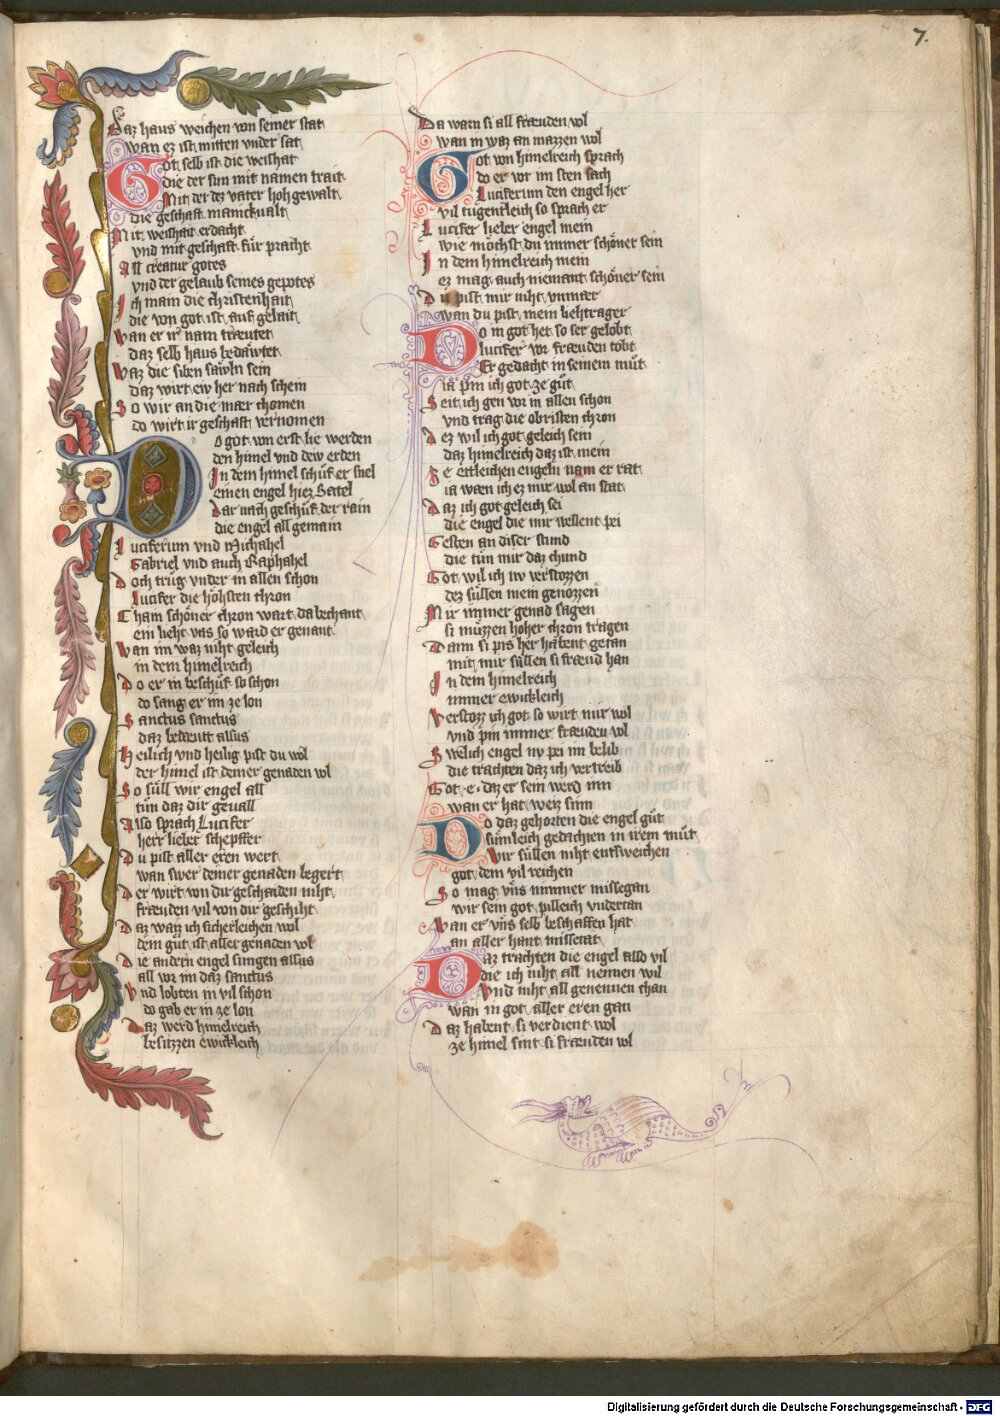 7.
Daz haus weichen von seiner stat
wan ez ist mitten vnder sat
Got selb ist die weishat
die der sun mit namen trait
Mit der dez vater hoh gewalt
die geschaft manickualt
Mit weishait erdacht
vnd mit geschaft für pracht
All creatur gotes
vnd der gelaub seines gepotes
Ich main die christenhait
die von got ist auf gelait
Wan er ir nam træutet
daz selb haus bedäwtet
Waz die siben säwln sein
daz wirt ew her nach schein
So wir an die mær chomen
do wirt ir geschaft vernomen
Do got von erst lie werden
den himel vnd dew erden
In dem himel schuf er snel
einen engel hiez Satel
Dar nach geschuf der rain
die engel all gemain
Luciferum vnd Michahel
Gabriel vnd auch Raphahel
Doch trug vnder in allen schon
Lucifer die hohsten chron
Cham schöner chron wart da bechant
ein lieht vas so ward er genant
Wan im waz niht geleich
in dem himelreich
Do er in beschuf so schon
do sang er im ze lon
Sanctus sanctus
daz bedeutt alsus
Heilich vnd heilig pist du wol
der himel ist deiner genaden vol
So süll wir engel all
tün daz dir geuall
Also sprach Lucifer
herr lieber schepffer
Du pist aller eren wert
wan swer deiner genaden begert
Der wirt von dir geschaiden niht
fræuden vil von dir geschiht
Daz waiz ich sicherleichen wol
dein güt ist aller genaden vol
Die andern engel sungen alsus
all vor im daz sanctus
Vnd lobten in vil schon
do gab er in ze lon
Daz werd himelreich
besitzzen ewickleich
Da warn si all fræuden vol
wan in waz an mazzen wol
Got von himelreich sprach
do er vor im sten sach
Luciferum den engel her
vil tugentleich so sprach er
Lucifer lieber engel mein
wie möchst du immer schöner sein
In dem himelreich mein
ez mag auch niemant schöner sein
Du pist mir niht vnmær
wan du pist mein liehtrager
Do in got het so ser gelobt
lucifer vor fræuden tobt
Er gedacht in seinem müt
ia pin ich got ze güt
Seit ich gen vor in allen schon
vnd trag die obristen chron
Dez wil ich got geleich sein
daz himelreich daz ist mein
Ze ettleichen engeln nam er rat
ia wæn ich ez mir wol an stat
Daz ich got geleich sei
die engel die mir wellent pei
Gesten an diser stund
die tün mir daz chund
Got wil ich nv verstozzen
dez süllen mein genozzen
Mir immer genad sagen
si müzzen hoher chron tragen
Dann si pis her habent getan
mit mir süllen si fræud han
In dem himelreich
immer ewickleich
Verstozz ich got so wirt mir wol
vnd pin immer fræuden vol
Swelich engel nv pei im belib
die trachten daz ich vertreib
Got e daz er sein werd inn
wan er hat weiz sinn
Do daz gehorten die engel güt
sümleich gedachten in irem müt
Wir süllen niht entsweichen
got dem vil reichen
So mag vns nimmer missegan
wir sein got pilleich vndertan
Wan er vns selb beschaffen hat
an aller hant missetat
Daz trachten die engel also vil
die ich niht all nennen wil
Vnd niht all genennen chan
wan in got aller eren gan
Daz habent si verdient wol
ze himel sint si fræuden vol
Digitalisierung gefördert durch die Deutsche Forschungsgemeinschaft - DFG